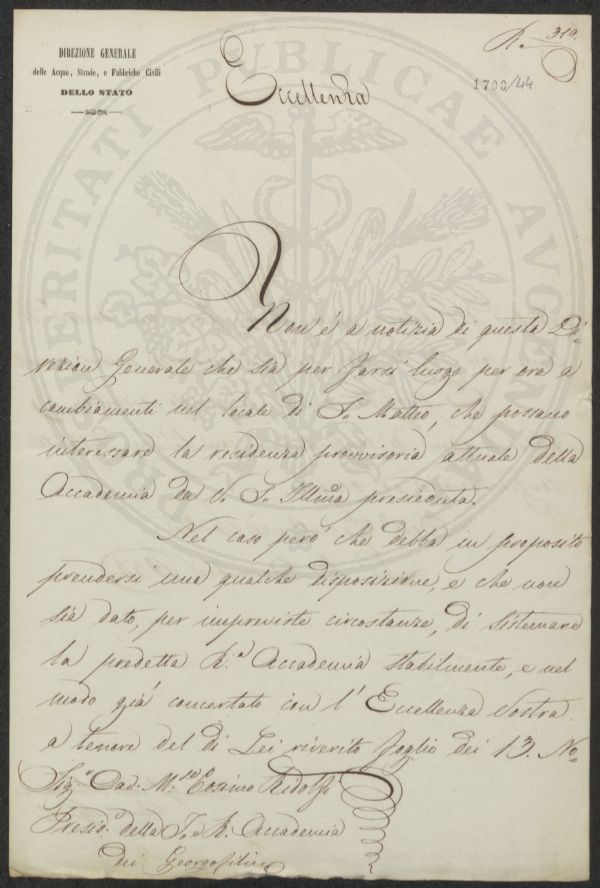 DIREZIONE GENERALE
delle Acque, Strade, e Fabbriche Civili
DELLO STATO
R. 319.
1799/44
Eccellenza
Non è a notizia di questa Di=
rezion Generale che sia per farsi luogo per ora a
cambiamenti nel locale di S. Matteo, che possano
interessare la residenza provvisoria attuale della
Accademia da V. S. Illma presieduta.
Nel caso però che debba in proposito
prendersi una qualche disposizione, e che non
sia dato, per impreviste circostanze, di sistemare
la predetta R.a Accademia stabilmente, e nel
modo già concertato con l'Eccellenza Vostra
a tenore del di Lei riverito foglio dei 13. No=
Sig.e Cav. M.se Cosimo Ridolfi
Presid.e della I. e R. Accademia
dei Georgofili
PUBLICAE
PROSPERITATI
AUGENDAE